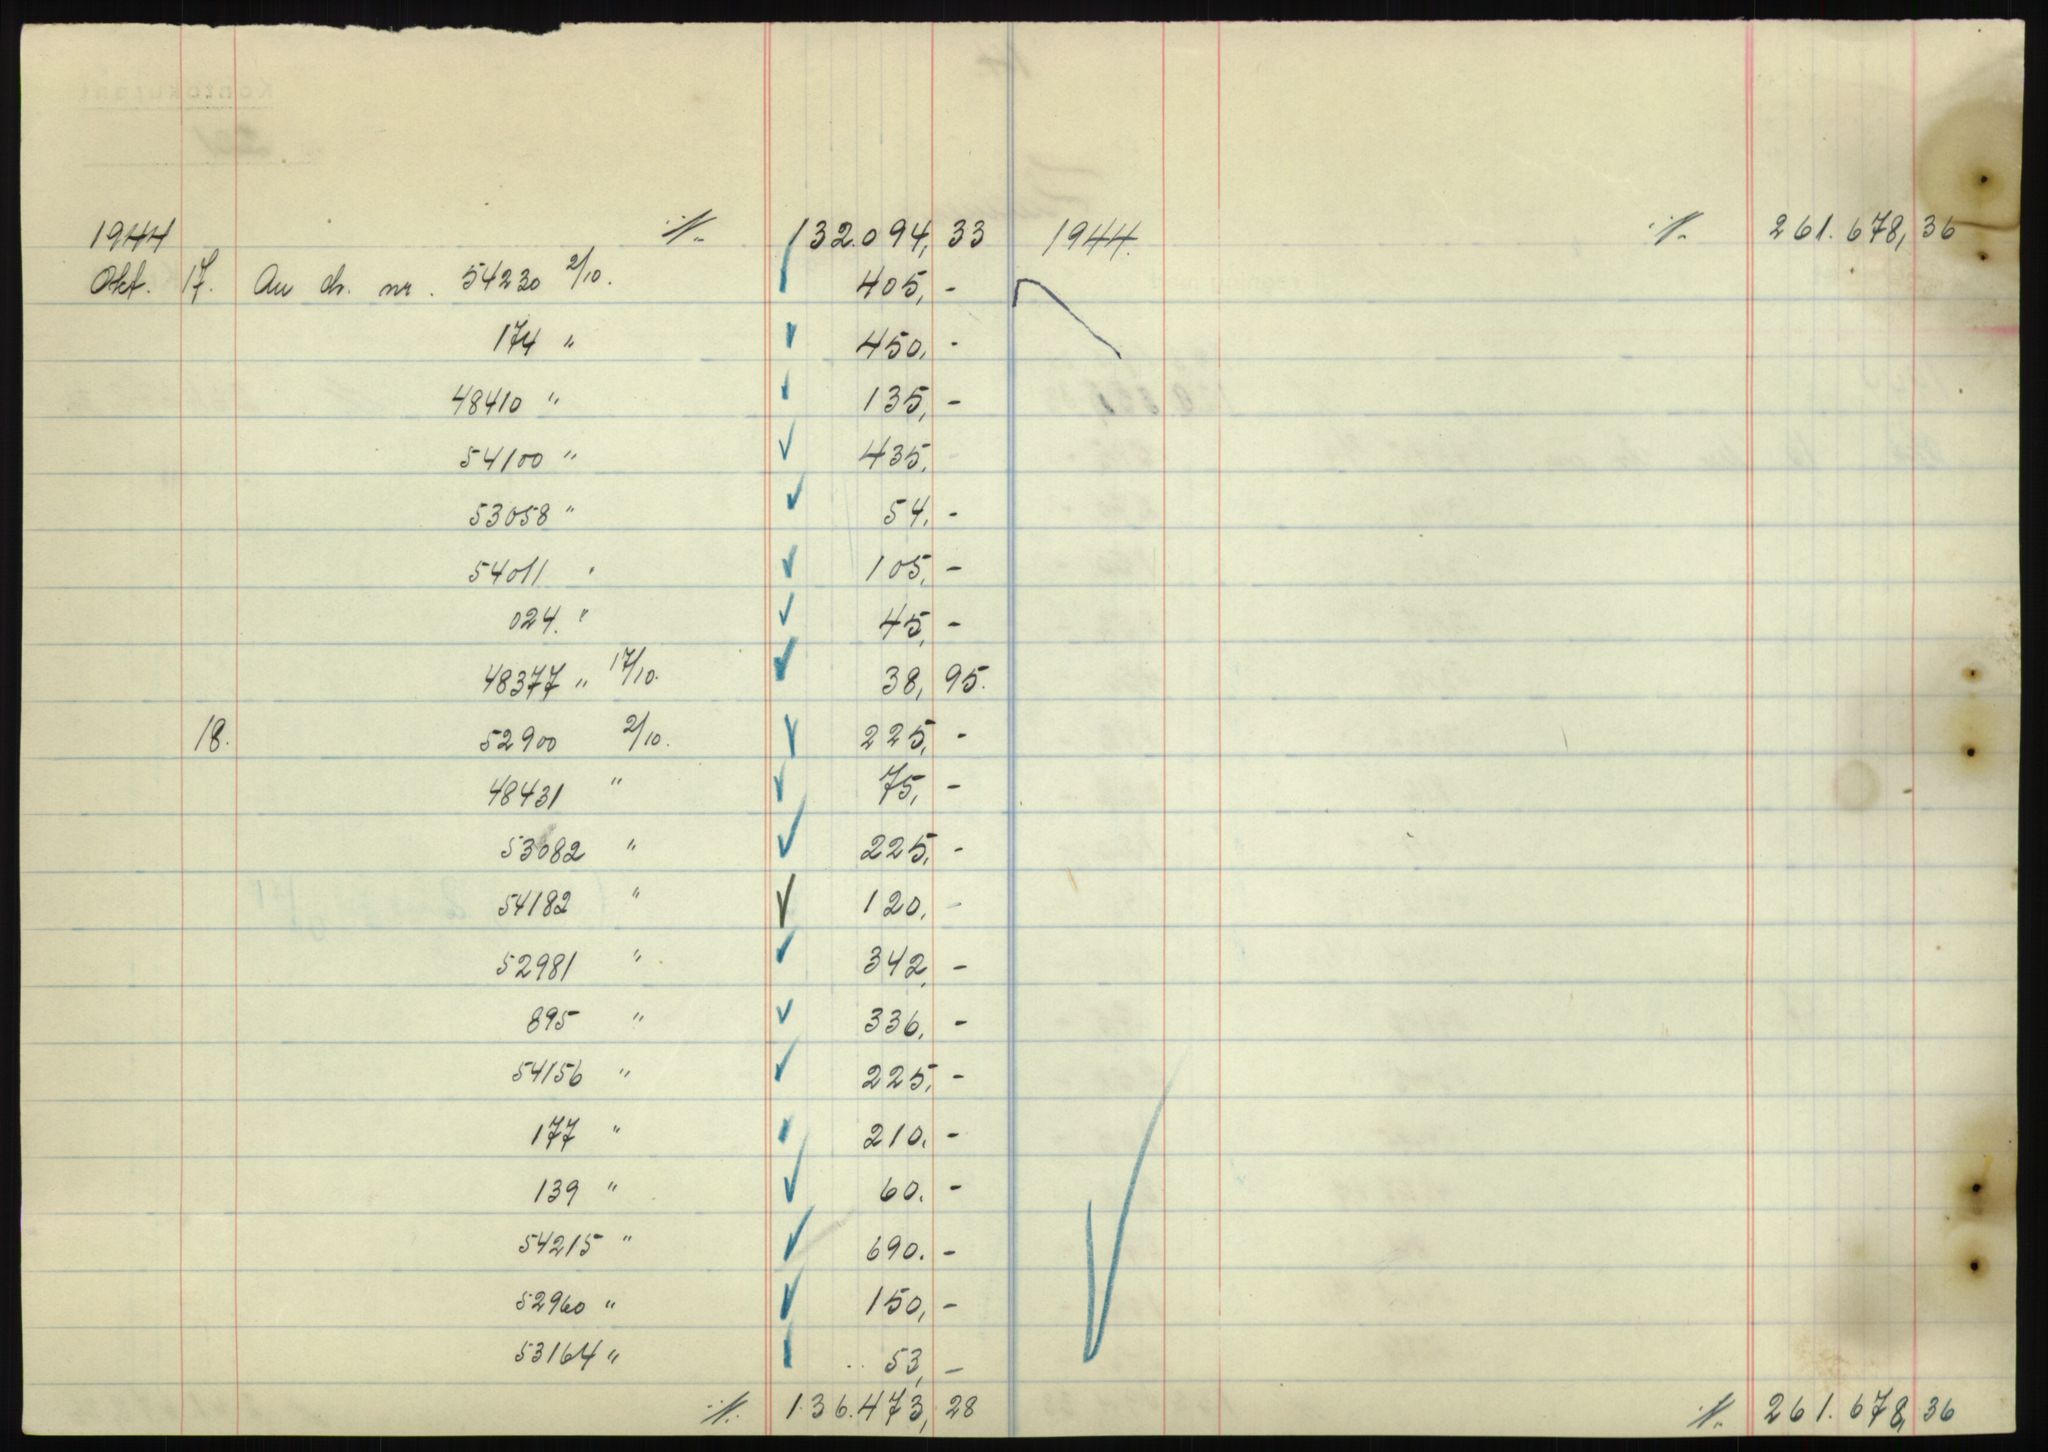 1944 ·/. 132.094,33
Okt. 17. An ch. nr. 54230 2/10. 405,-
174 " 450,-
48410 " 135,-
54100 " 435,-
53058 " 54,-
54011 " 105,-
024. " 45,-
48377 " 17/10. 38,95.
18. 52900 2/10. 225,-
48431 " 75,-
53082 " 225,-
54182 " 120,-
52981 " 342,-
895 " 336,-
54156 " 225,-
177 " 210,-
139 " 60.-
54215 " 690.-
52960 " 150,-
53164 " 53,-
·/. 136.473,28
1944. ·/. 261.678,36
·/. 261.678,36